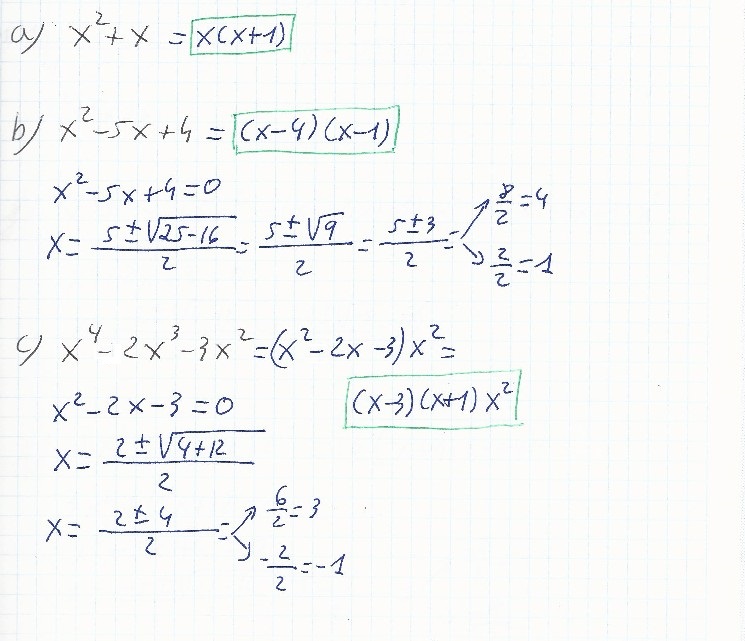 a) x²+x = x(x+1)
b) x²-5x+4 = (x-4)(x-1)
x²-5x+4=0
x= (5±√(25-16))/2 = (5±√9)/2 = (5±3)/2 = ↗ 8/2=4
↘ 2/2=1
c) x⁴-2x³-3x²=(x²-2x-3)x²=
x²-2x-3=0 (x-3)(x+1)x²
x= (2±√(4+12))/2
x= (2±4)/2 = ↗ 6/2=3
↘ -2/2=-1